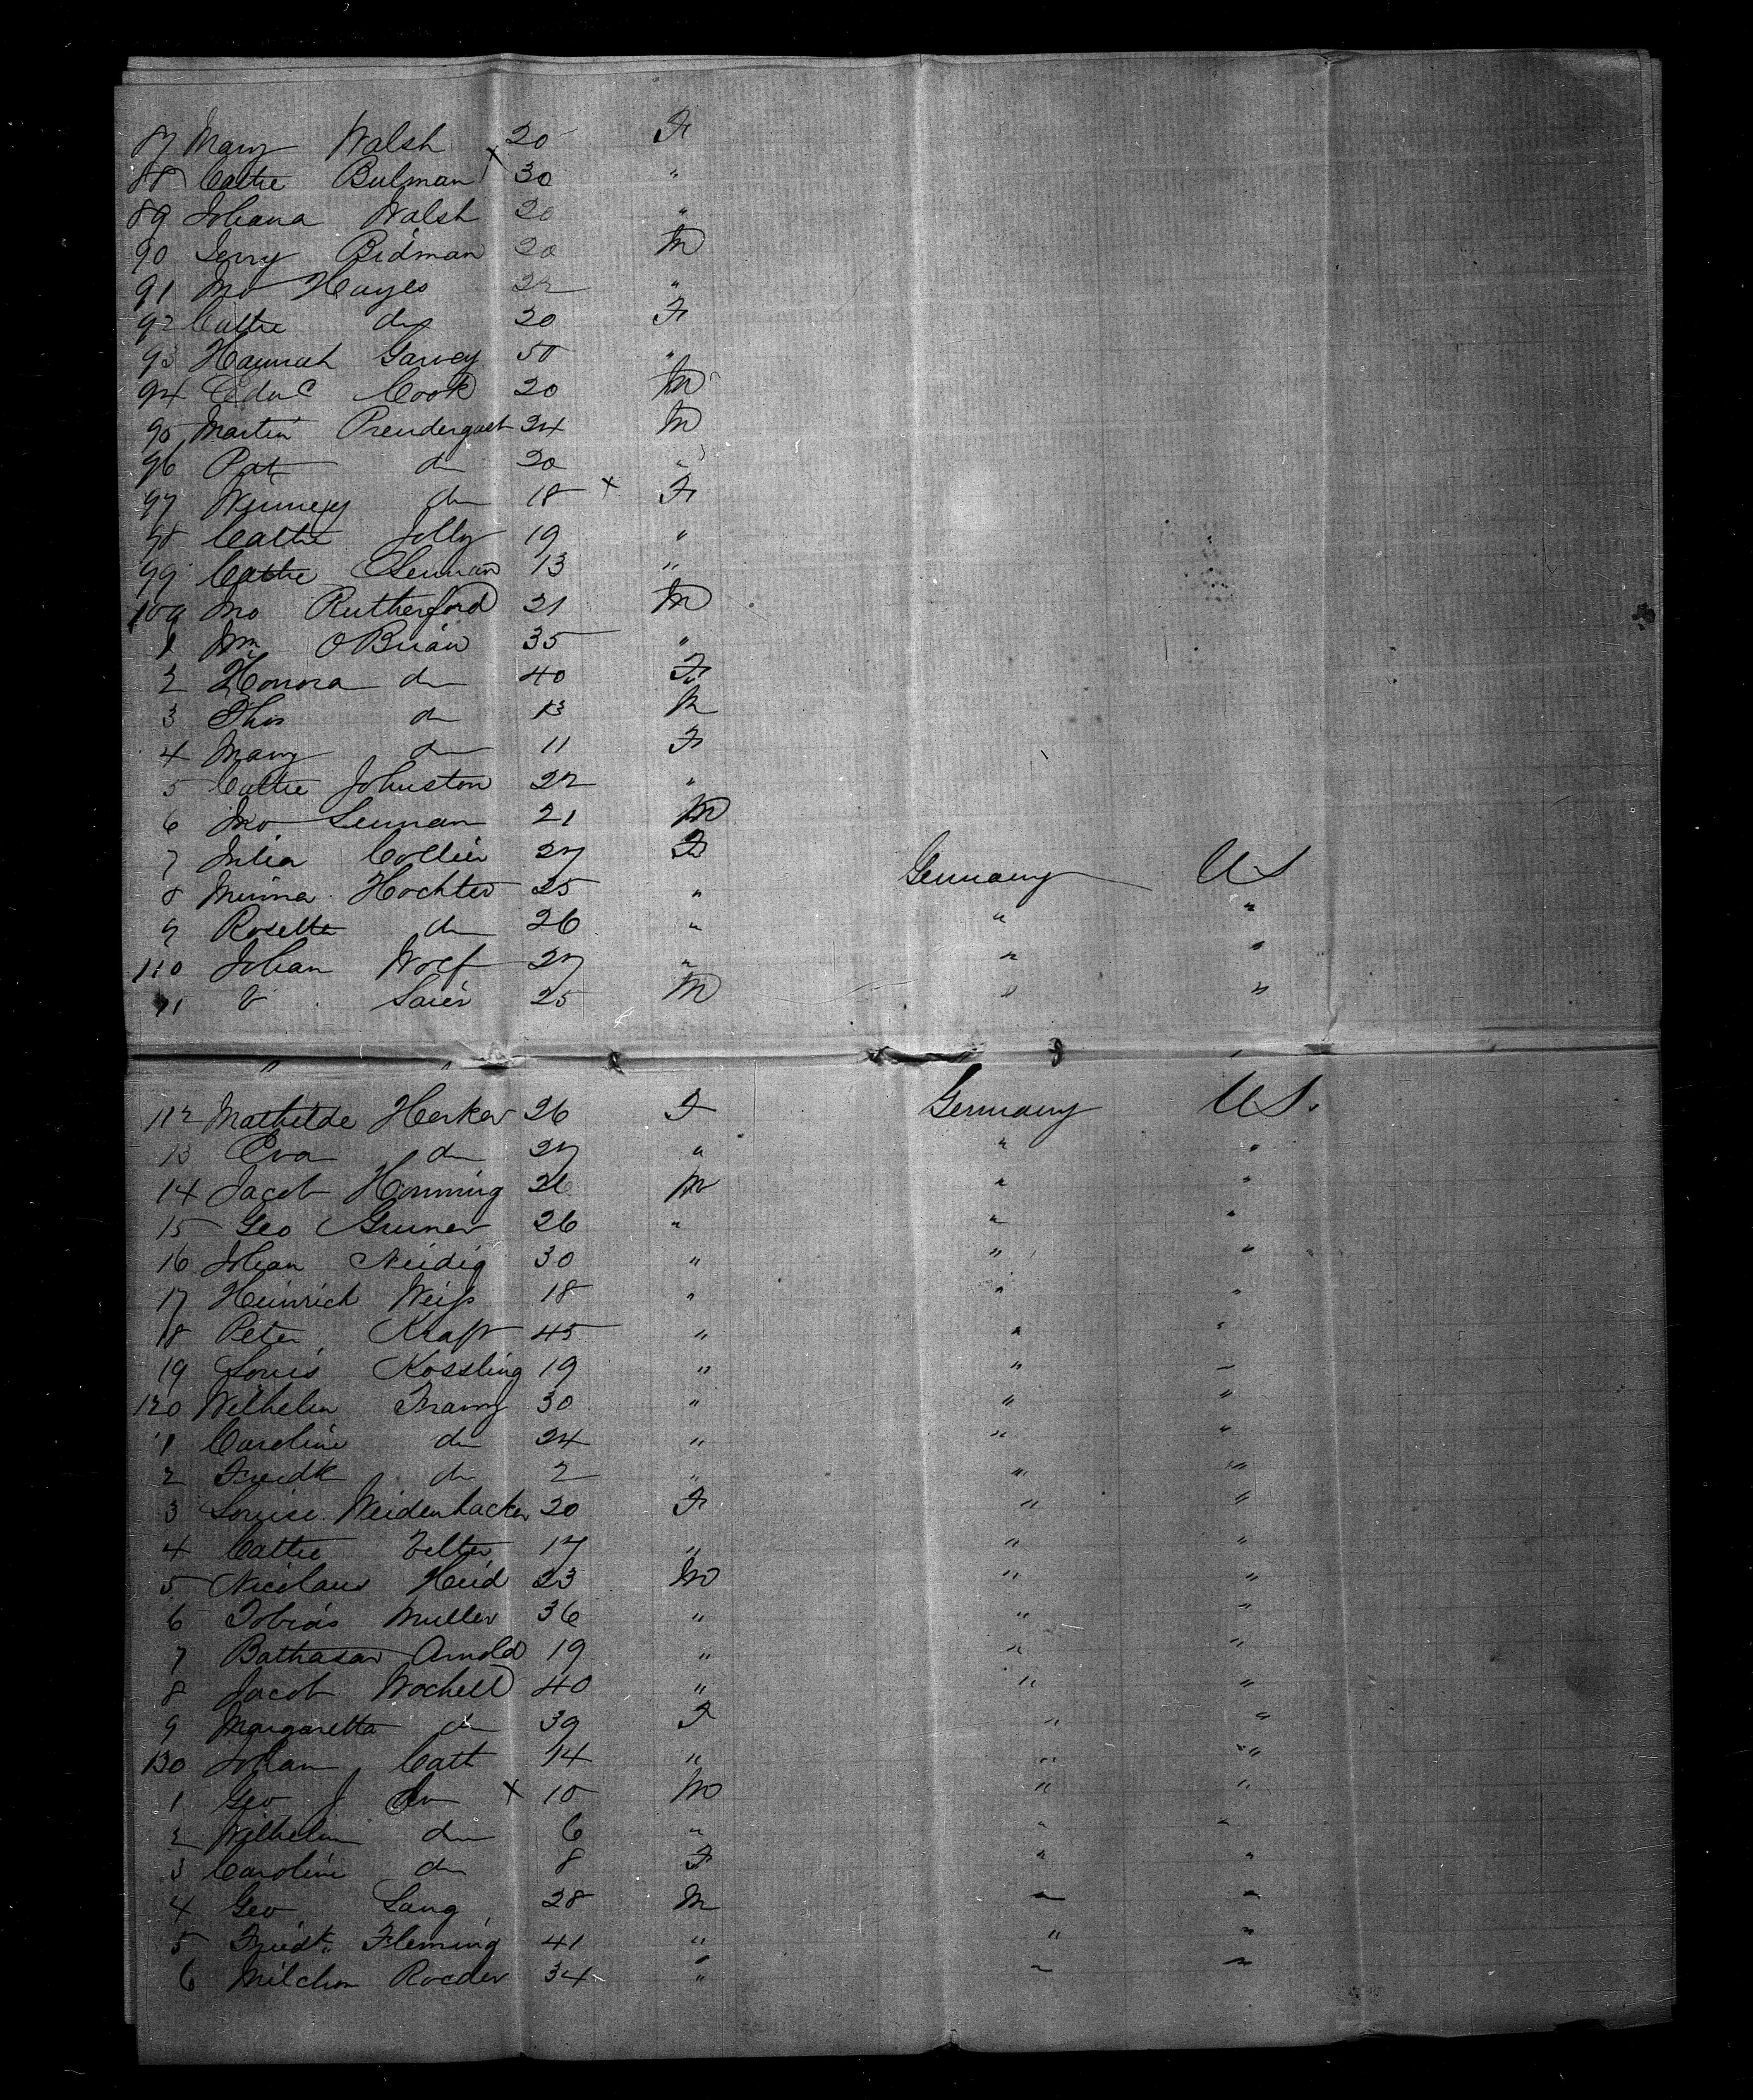 87 Mary Walsh 20 F
88 Cathe Bulman 30 "
89 Johana Walsh 20 "
90 Jerry Bidman 20 M
91 Jno Hayes 22 "
92 Cathe do 20 F
93 Hannah Garvey 50 "
94 Edwd Cook 20 M
95 Martin Prendergast 24 M
96 Pat do 20 "
97 Winney do 18 F
98 Cathe Jolly 19 "
99 Cathe 13 "
100 Jno Rutherford 21 M
1 Wm OBrian 35 "
2 Honora do 40 F
3 Thos do 13 M
4 Mary do 11 F
5 Cathe Johnston 22 "
6 Jno Lennan 21 M
7 Julia Collier 27 F
8 Minna Hochter 25 " Germany U S
9 Rosetta do 26 " " "
110 Johan Wolf 27 " " "
11 V Saier 25 M " "
" " "
112 Mathilde Herker 26 F Germany U S.
13 Eva do 27 " " "
14 Jacob Honning 26 M " "
15 Geo Gruner 26 " " "
16 Johan Neidig 30 " " "
17 Heinrich Weiss 18 " " "
18 Peter Kraft 45 " " "
19 Louis Kossling 19 " " "
120 Wilhelm Franz 30 " " "
1 Caroline do 24 " " "
2 Friedk do 2 " " "
3 Louise Weidenhacker 20 F " "
4 Cathe Zelter 17 " " "
5 Nicolaus Heid 23 M " "
6 Tobias Muller 36 " " "
7 Bathasar Arnold 19 " " "
8 Jacob Wochell 40 " " "
9 Margaretta do 39 F " "
130 Johan Catt 14 " " "
1 Geo J do X 10 M " "
2 Wilhelm do 6 " " "
3 Caroline do 8 F " "
4 Geo Lang 28 M " "
5 Friedk Fleming 41 " " "
6 Milchon Roeder 34 " " "